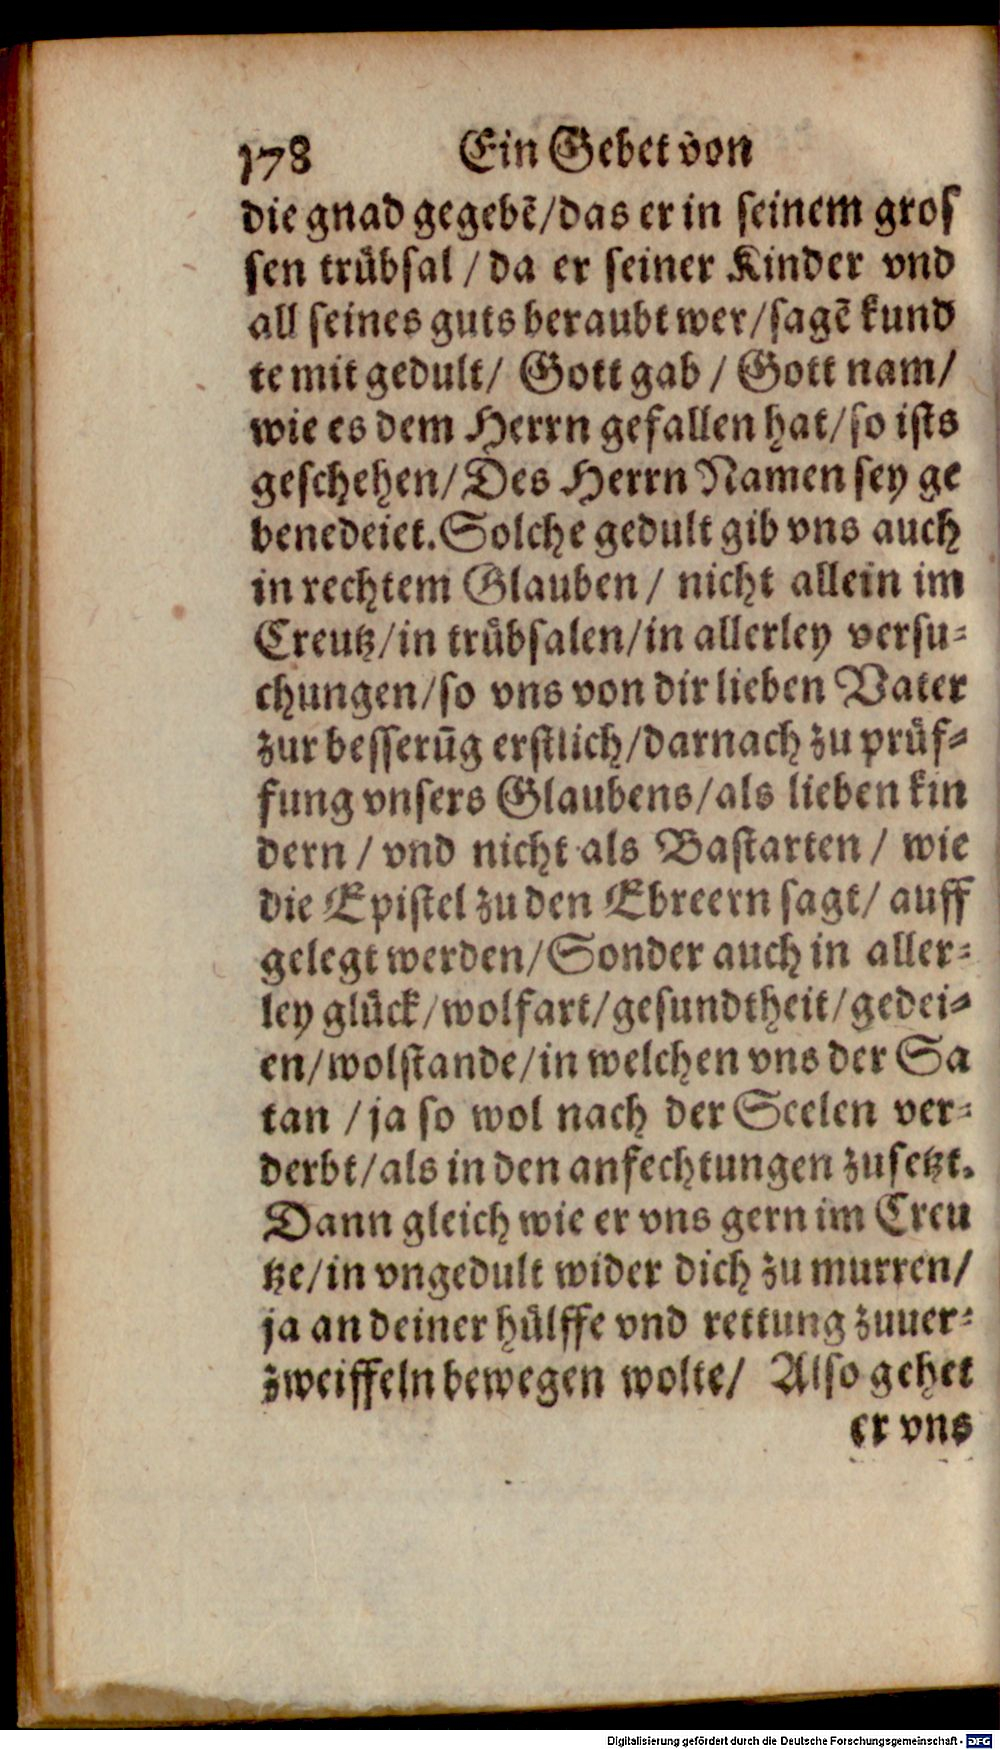 178 Ein Gebet von
die gnad gegebẽ/das er in seinem gros
sen trübsal / da er seiner Kinder vnd
all seines guts beraubt wer/sagẽ kund
te mit gedult/ Gott gab / Gott nam/
wie es dem Herrn gefallen hat/so ists
geschehen/Des Herrn Namen sey ge
benedeiet. Solche gedult gib vns auch
in rechtem Glauben / nicht allein im
Creutz/in trübsalen/in allerley versu-
chungen/so vns von dir lieben Vater
zur besserũg erstlich/darnach zu prüf-
fung vnsers Glaubens/als lieben kin
dern / vnd nicht als Bastarten / wie
die Epistel zu den Ebreern sagt/ auff
gelegt werden/Sonder auch in aller-
ley glück/wolfart/gesundtheit/gedei-
en/wolstande/in welchen vns der Sa
tan /ja so wol nach der Seelen ver-
derbt/als in den anfechtungen zusetzt.
Dann gleich wie er vns gern im Creu
tze/in vngedult wider dich zu murren/
ja an deiner hülffe vnd rettung zuuer-
zweiffeln bewegen wolte/ Also gehet
er vns
Digitalisierung gefördert durch die Deutsche Forschungsgemeinschaft - DFG